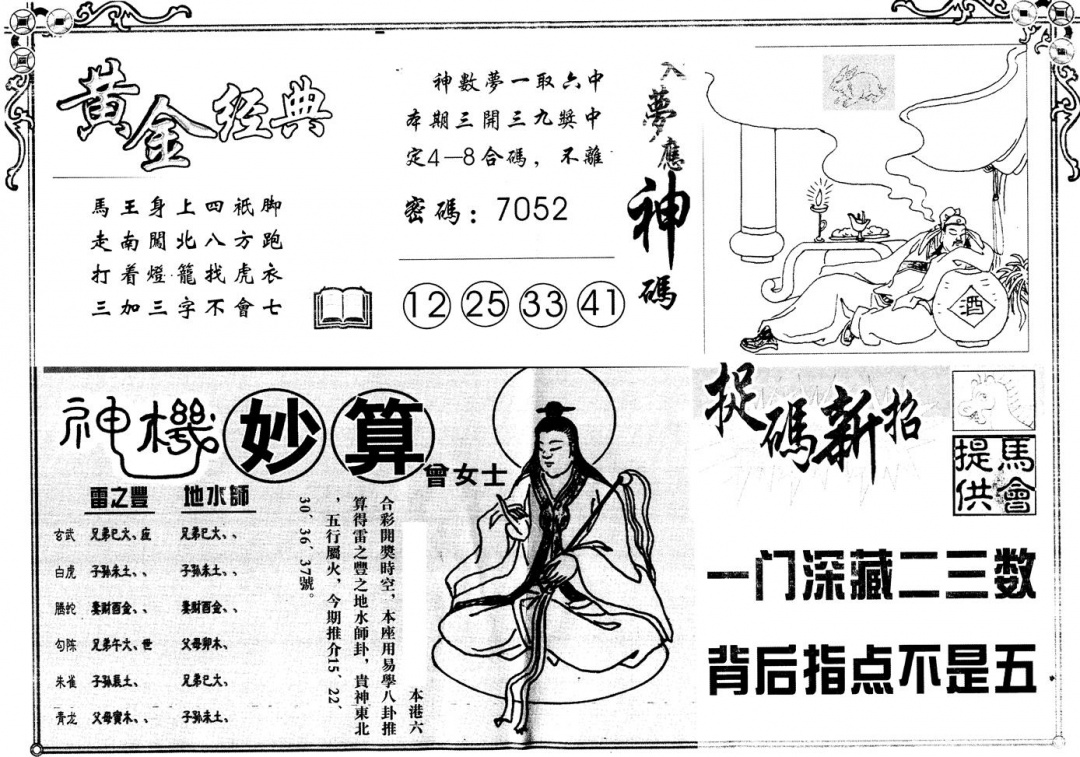 黄金经典
馬王身上四祇脚
走南闖北八方跑
打着燈籠找虎衣
三加三字不會七
神數夢一取六中
本期三開三九獎中
定4—8合碼，不離
密碼：7052
12 25 33 41
入夢應神碼
酒
神機妙算
曾女士
雷之豐 地水師
玄武 兄弟巳火、應 兄弟巳火、、
白虎 子孫未土、、 子孫未土、、
騰蛇 妻財酉金、、 妻財酉金、、
勾陈 兄弟午火、世 父母卯木、
朱雀 子孫辰土、 兄弟巳火、
青龙 父母寅木、、 子孫未土、
本港六
合彩開獎時空，本座用易學八卦推
算得雷之豐之地水師卦，貴神東北
，五行屬火，今期推介15、22、
30、36、37號。
捉碼新招
馬會
提供
一门深藏二三数
背后指点不是五